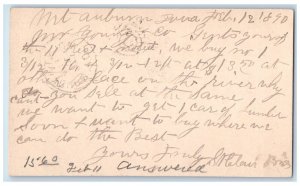 Mt Auburn Iowa Feb, 12 1890
Mr Young & Co Sirs yours of
the 11 Rec'd & we buy no 1
2/12 - 16, at 13.50 at
other place on the river why
can't you sell at the Same
we want to get 1 car of lumber
Soon & want to buy where we
can do the Best
Yours Truly St Clair Bros
15 60
Feb 11 Answered